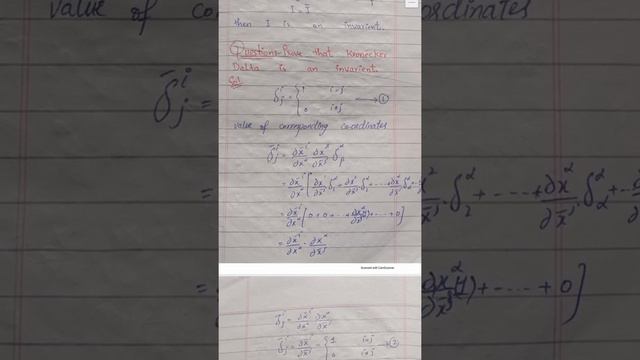 I = Ī
then I is an invarient.
Question:- Prove that Kronecker
Delta is an invarient.
Sol:
δ^i_j = { 1 i=j
0 i≠j → ①
value of corresponding coordinates
δ̄^i_j = ∂x̄^i/∂x^α ∂x^β/∂x̄^j δ^α_β
= ∂x̄^i/∂x^α [∂x^1/∂x̄^j δ^α_1 + ∂x^2/∂x̄^j δ^α_2 + ---- + ∂x^α/∂x̄^j δ^α_α + --
= ∂x̄^i/∂x^α [0 + 0 + -- + ∂x^α/∂x̄^j (1) + --- + 0]
= ∂x̄^i/∂x^α · ∂x^α/∂x̄^j
Scanned with CamScanner
δ̄^i_j = ∂x̄^i/∂x^α ∂x^α/∂x̄^j
δ̄^i_j = ∂x̄^i/∂x̄^j = { 1 i=j
0 i≠j → ②